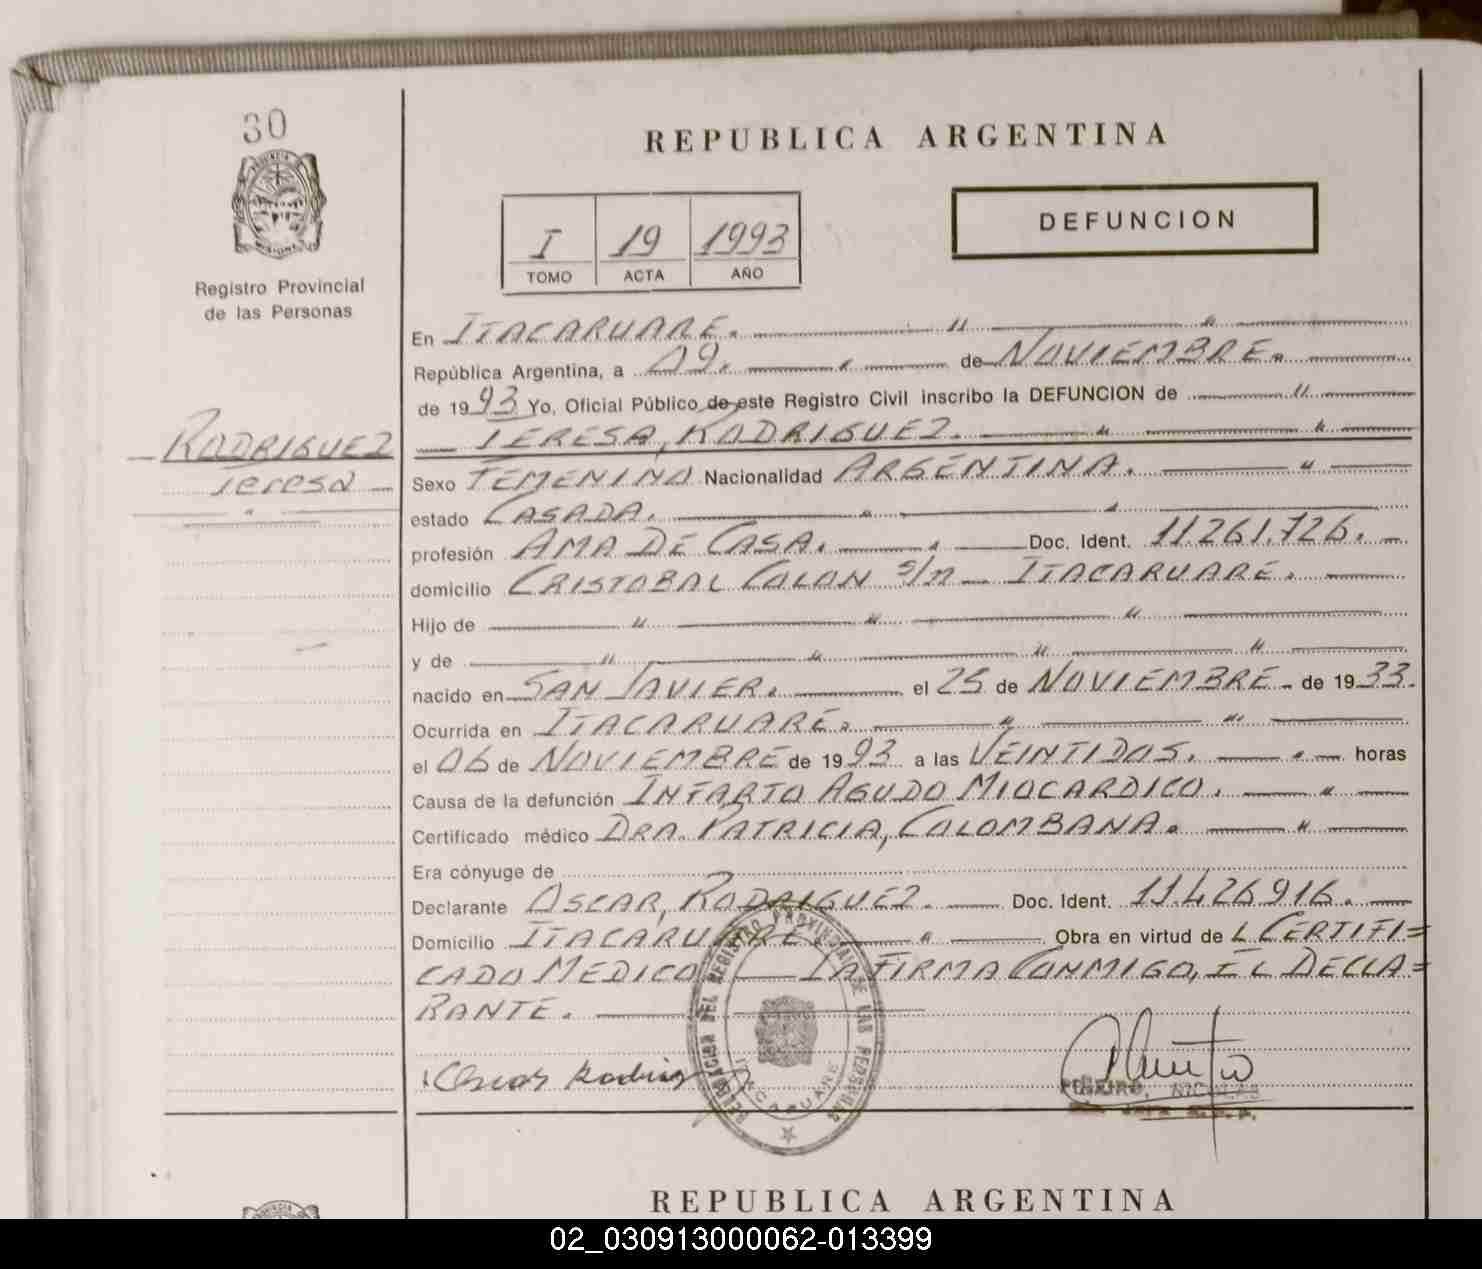 30
REPUBLICA ARGENTINA
I 19 1993
TOMO ACTA AÑO
DEFUNCION
Registro Provincial
de las Personas
RODRIGUEZ
Teresa
En ITACARUARE.
República Argentina, a 09. de NOVIEMBRE.
de 1993 Yo, Oficial Público de este Registro Civil inscribo la DEFUNCION de
TERESA, RODRIGUEZ.
Sexo FEMENINO Nacionalidad ARGENTINA.
estado CASADA.
profesión AMA DE CASA. Doc. Ident. 11.261.726.
domicilio CRISTOBAL COLON s/n - ITACARUARE.
Hijo de
y de
nacido en SAN JAVIER. el 25 de NOVIEMBRE - de 1933.
Ocurrida en ITACARUARE.
el 06 de NOVIEMBRE de 1993 a las VEINTIDOS. horas
Causa de la defunción INFARTO AGUDO MIOCARDICO.
Certificado médico DRA. PATRICIA, COLOMBANA.
Era cónyuge de
Declarante OSCAR, RODRIGUEZ. Doc. Ident. 11.426.916.
Domicilio ITACARUARE. Obra en virtud de L CERTIFI=
CADO MEDICO LA FIRMA CONMIGO, EL DECLA=
RANTE.
Oscar Rodrig
DELEGACION DEL REGISTRO PROVINCIAL DE LAS PERSONAS
ITACARUARE
PIÑEIRO, NICOLAS
REPUBLICA ARGENTINA
02_030913000062-013399